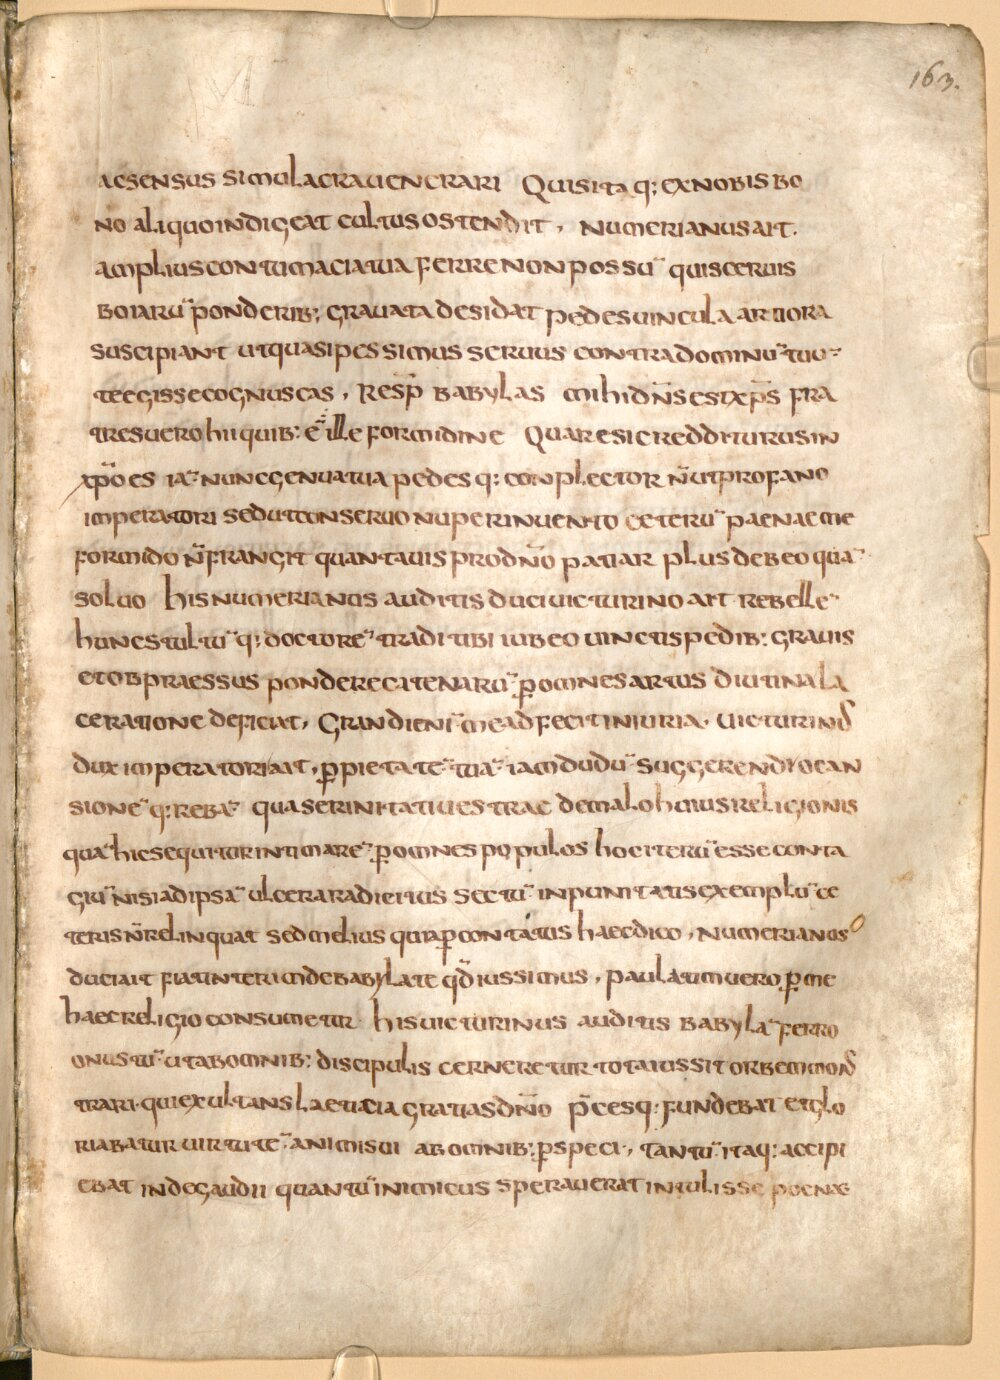 163.
ac sensus simulacra venerari Quisitaq; ex nobis bo
no aliquo indigeat cultus ostendit, numerianus ait.
amplius contumacia tua ferre non possū quis cervis
boiarū ponderib; gravata desidat pedes vincula artiora
suscipiant ut quasi pessimus servus contra dominū tuū
te egisse cognuscas, Resp̄ babylas mihi dn̄s est xp̄s fra
tres vero hii quib: ē ille formidine Quare si crediturus in
xp̄o es iā nunc genua tua pedesq: conplector n̄ ut profano
imperatori sed ut conservo nuper invento ceterū paenae me
formido n̄ frangit quantavis pro dn̄o patiar plus debeo quā
solvo his numerianus auditis duci victurino ait rebellē
hunc stultūq; doctorē traditibi iubeo vinctis pedib: gravis
et obpraessus pondere catenarū p̱ omnes artus diutina la
ceratione deficiat, Grandi enī me adfecit iniuria. Victurinus
dux imperatori ait, p̱ pietatē tuā iamdudū suggerendi ocan
sionē q:rebā qua serinitati vestrae de malo huius religionis
quā hic sequitur intimarē p̱ omnes populos hoc iterū esse conta
giū nisi ad ipsā ulcera radicitus sectū inpunitatis exemplū ce
teris n̄ relinquat sed melius quia p̱contatus haec dico, numerianus
duci ait fiat interim de babylate qd̄ iussimus, paulatim vero p̱ me
haec religio consumetur his victurinus auditis babylā ferro
onustū ut ab omnib: discipulis cerneretur tota iussit orbem mons
trari. qui exultans laetitia gratias dn̄o p̄cesq: fundebat et glo
riabatur virtutē animi sui ab omnib: p̱speci, tantū itaq: accipi
ebat inde gaudii quantū inimicus speraverat intulisse poenae